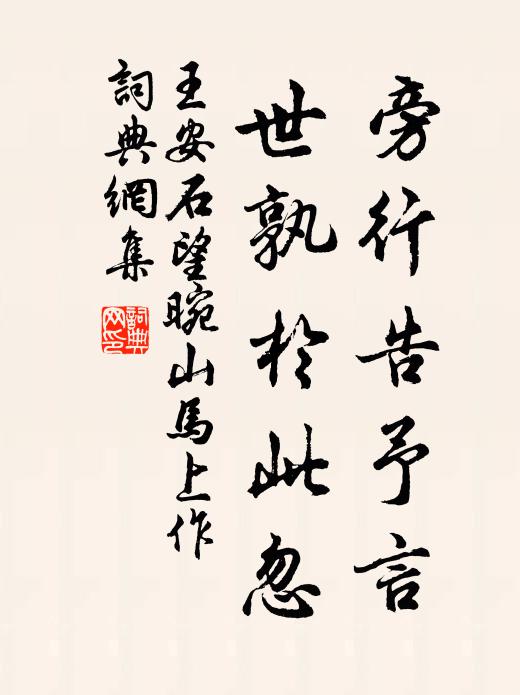 旁行告予言
世孰於此忽
王安石望睕山馬上作
詞典網集
詞典网印